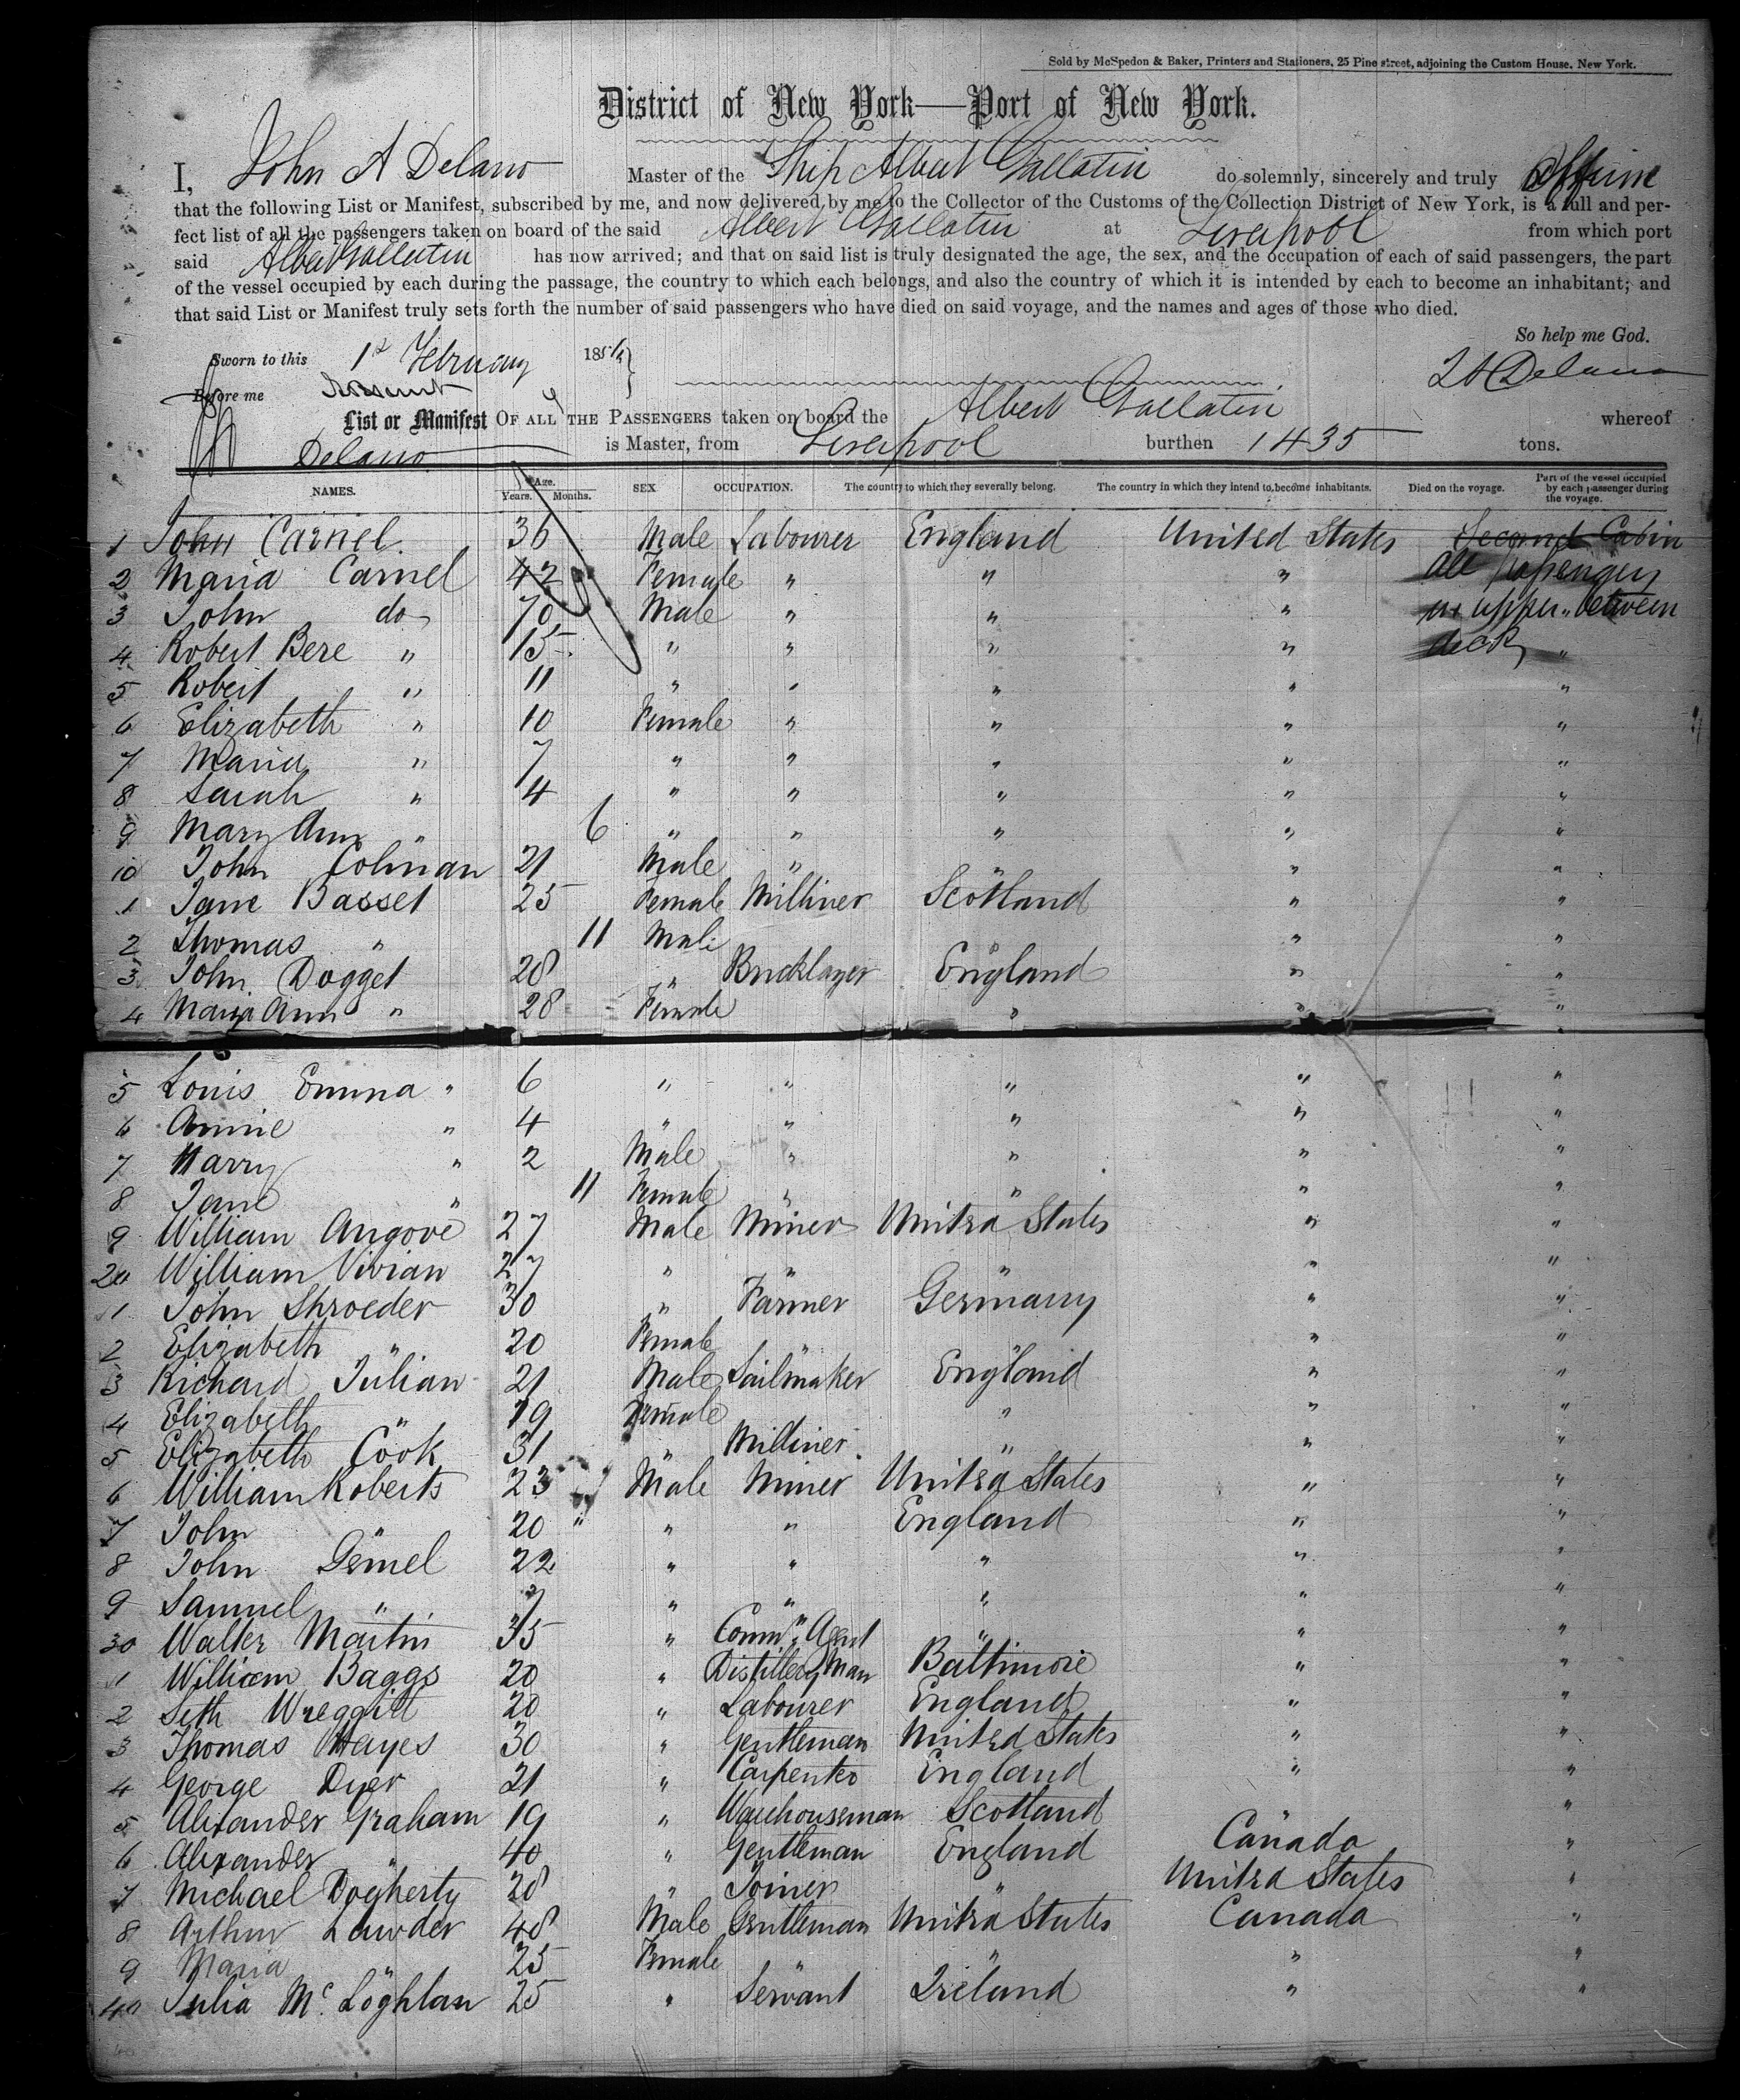 Sold by McSpedon & Baker, Printers and Stationers, 25 Pine street, adjoining the Custom House. New York.
District of New York—Port of New York.
I, John A Delano Master of the Ship Albert Gallatin do solemnly, sincerely and truly affirm
that the following List or Manifest, subscribed by me, and now delivered by me to the Collector of the Customs of the Collection District of New York, is a full and per-
fect list of all the passengers taken on board of the said Albert Gallatin at Liverpool from which port
said Albert Gallatin has now arrived; and that on said list is truly designated the age, the sex, and the occupation of each of said passengers, the part
of the vessel occupied by each during the passage, the country to which each belongs, and also the country of which it is intended by each to become an inhabitant; and
that said List or Manifest truly sets forth the number of said passengers who have died on said voyage, and the names and ages of those who died.
So help me God.
Sworn to this 1st February 185
J A Delano
Before me
List or Manifest OF ALL THE PASSENGERS taken on board the Albert Gallatin whereof
Delano is Master, from Liverpool burthen 1435 tons.
NAMES. Age. Years. Months. SEX OCCUPATION. The country to which they severally belong. The country in which they intend to become inhabitants. Died on the voyage. Part of the vessel occupied by each passenger during the voyage.
1 John Carnel. 36 Male Labourer England United States Second Cabin
2 Maria Carnel 42 Female " " " All passengers
3 John do 70 Male " " " in upper between
4 Robert Bere " 15 " " " " decks "
5 Robert " 11 " " " " "
6 Elizabeth " 10 Female " " " "
7 Maria " 7 " " " " "
8 Sarah " 4 " " " " "
9 Mary Ann " 6 " " " " "
10 John Colman 21 Male " " " "
1 Jane Basset 25 Female Milliner Scotland " "
2 Thomas " 11 Male " " "
3 John Dogget 28 " Bricklayer England " "
4 Mary Ann " 28 Female " " "
5 Louis Emma " 6 " " " " "
6 Annie " 4 " " " " "
7 Harry " 2 Male " " " "
8 Jane " 11 Female " " " "
9 William Angove 27 Male Miner United States " "
20 William Vivian 27 " " " " "
1 John Shroeder 30 " Farmer Germany " "
2 Elizabeth " 20 Female " " " "
3 Richard Julian 21 Male Sailmaker England " "
4 Elizabeth " 19 Female " " " "
5 Elizabeth Cook 31 " Milliner " " "
6 William Roberts 23 Male Miner United States " "
7 John " 20 " " " England " "
8 John Gemel 22 " " " " "
9 Samuel " 7 " " " " "
30 Walter Martin 35 " Commn Agent " " "
1 William Baggs 20 " Distillery Man Baltimore " "
2 Seth Wreggitt 20 " Labourer England " "
3 Thomas Hayes 30 " Gentleman United States " "
4 George Dyer 21 " Carpenter England " "
5 Alexander Graham 19 " Warehouseman Scotland " "
6 Alexander " 40 " Gentleman England Canada "
7 Michael Dogherty 28 " Joiner " United States "
8 Arthur Lawder 48 Male Gentleman United States Canada "
9 Maria " 25 Female " " " "
40 Julia McLoghlan 25 " Servant Ireland " "